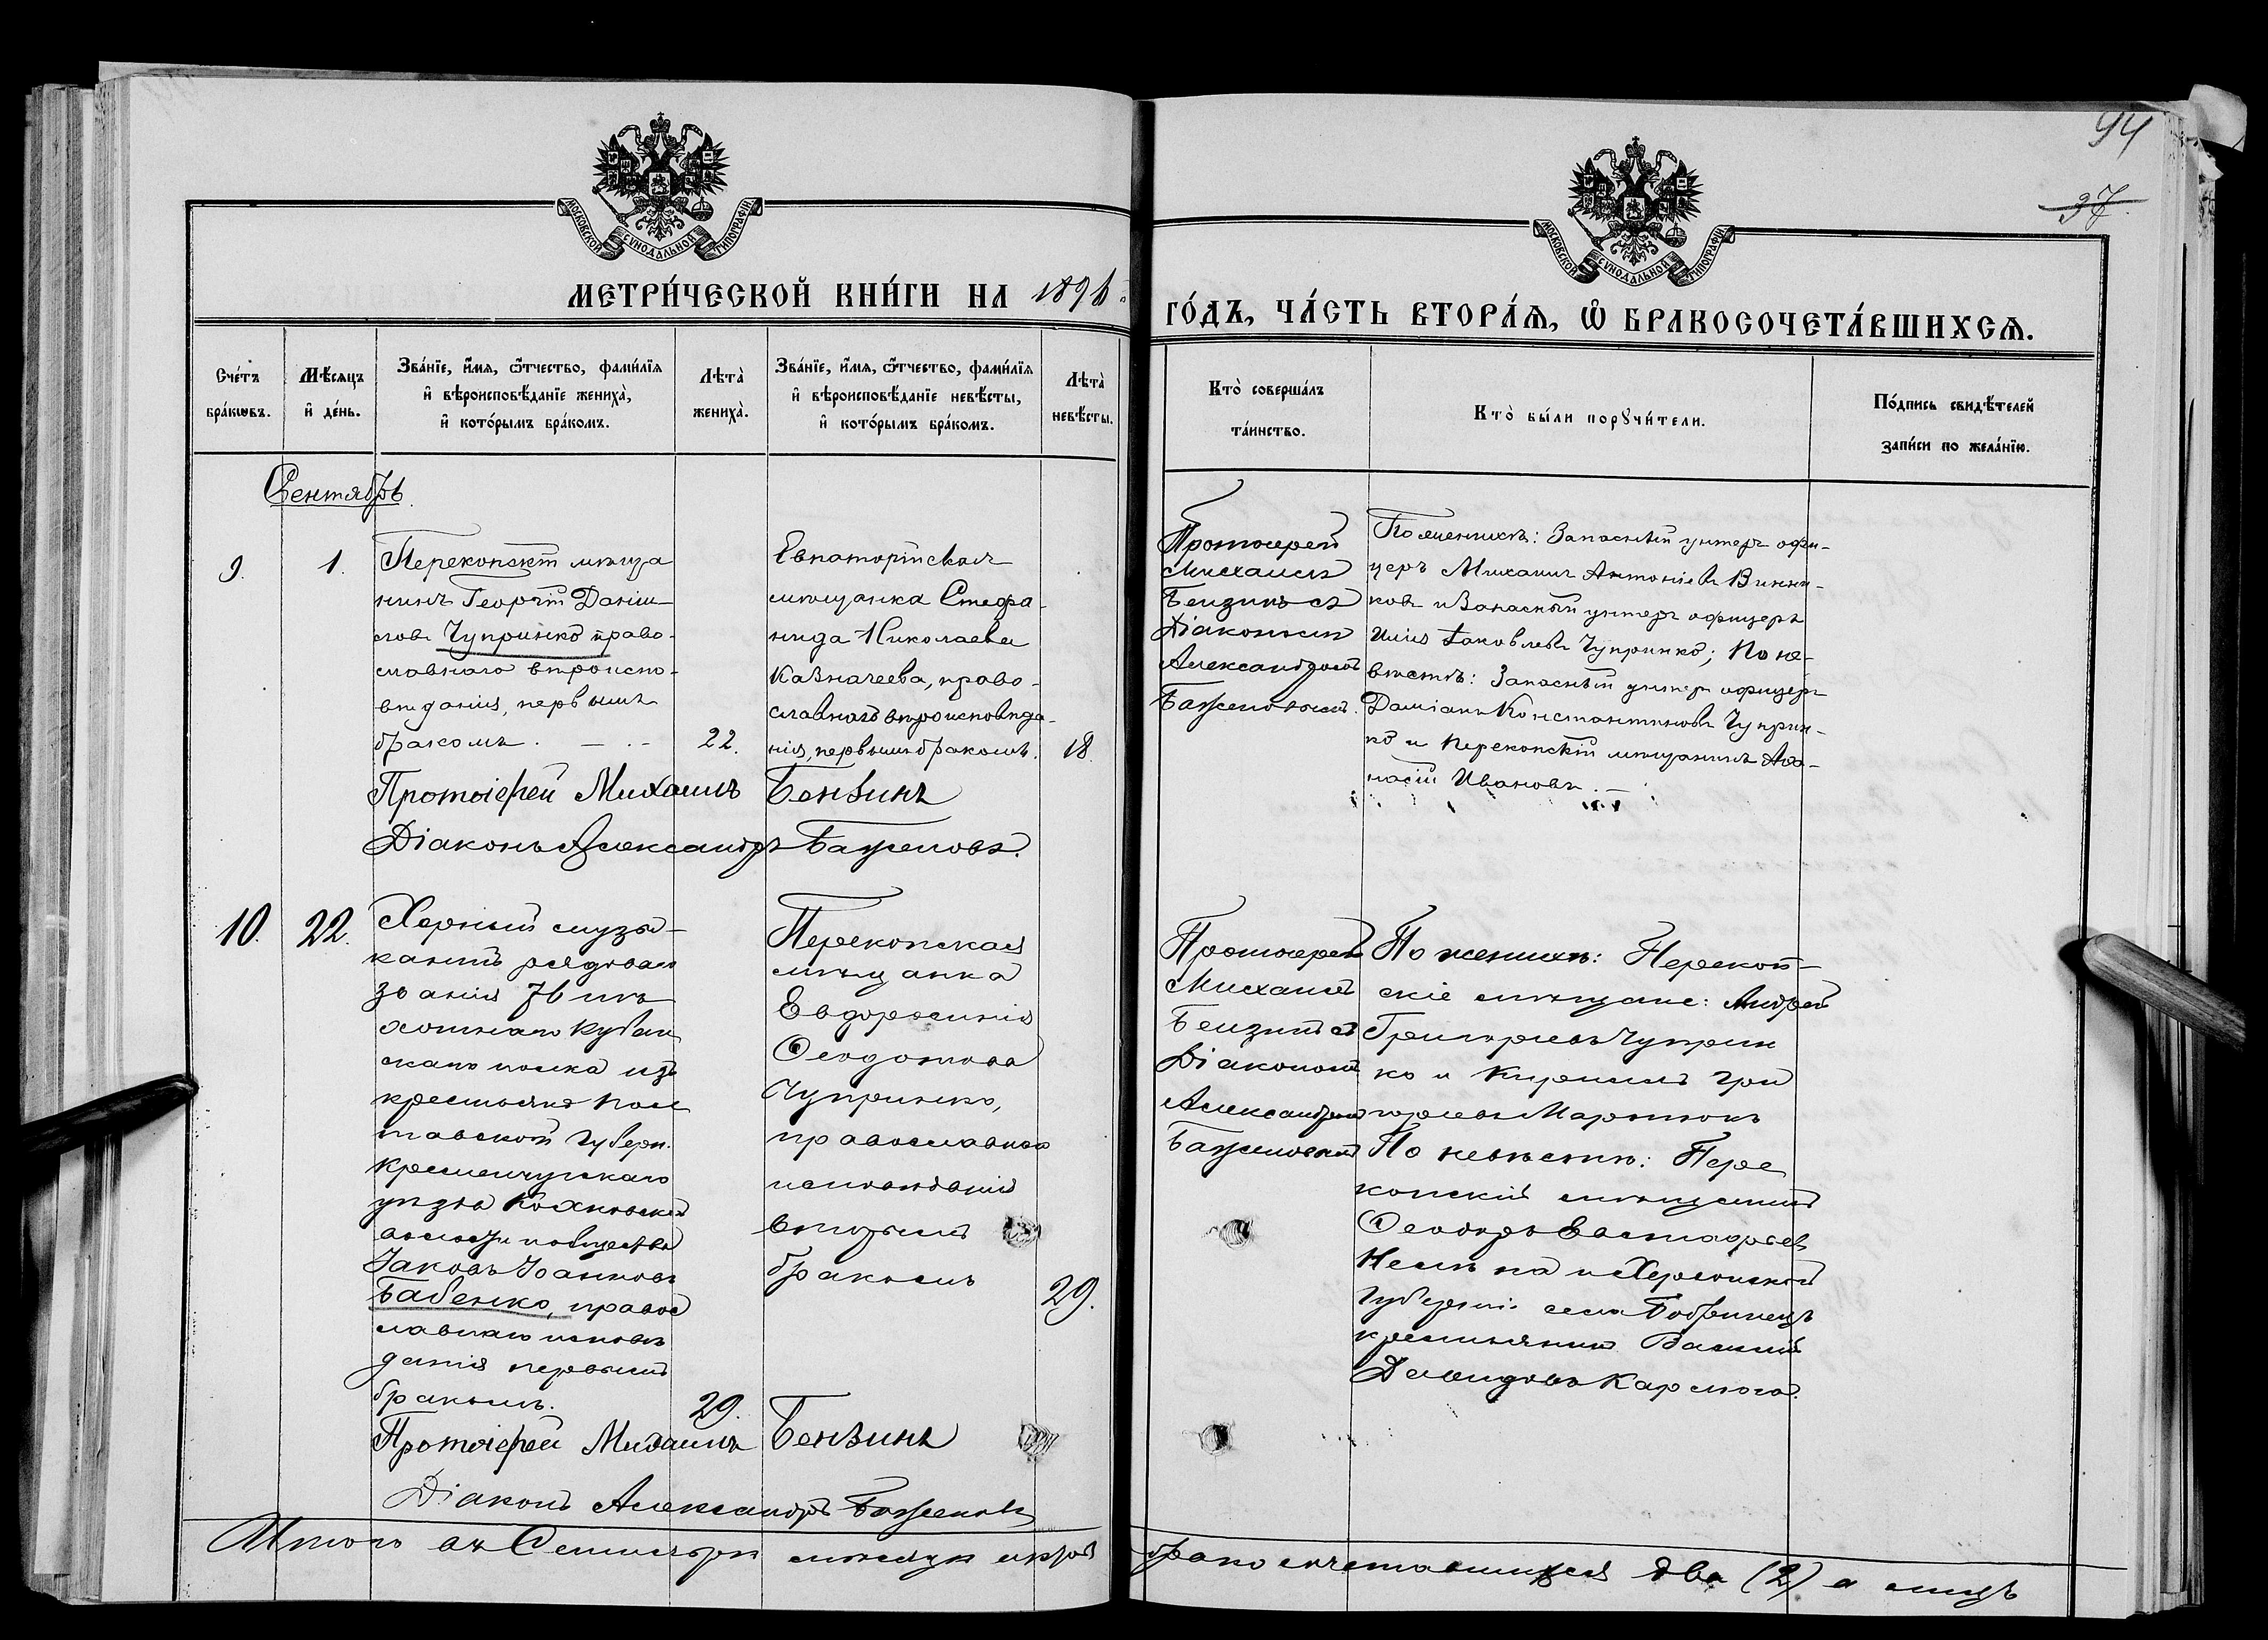 94
37.
МОСКОВСКОЙ СѴНОДАЛЬНОЙ ТИПОГРАФІИ
МОСКОВСКОЙ СѴНОДАЛЬНОЙ ТИПОГРАФІИ
МЕТРИ́ЧЕСКОЙ КНИ́ГИ НА 1896
ГО́ДЪ, ЧА́СТЬ ВТОРА́Я, Ѡ БРАКОСОЧЕТА́ВШИХСЯ.
Сче́тъ
бра́ковъ.
Мѣ́сяцъ
и де́нь.
Зва́нїе, и́мя, ѻ́тчество, фами́лїя
и вѣроисповѣ́данїе жениха̀,
и кото́рымъ бра́комъ.
Лѣта̀
жениха̀.
Зва́нїе, и́мя, ѻ́тчество, фами́лїя
и вѣроисповѣ́данїе невѣ́сты,
и кото́рымъ бра́комъ.
Лѣта̀
невѣ́сты.
Кто̀ соверша́лъ
та́инство.
Кто̀ бы́ли порꙋчи́тели.
По́дпись свидѣ́телей
за́писи по жела́нїю.
Сентябрь.
9.
1.
Перекопскій мѣща
нинъ Георгій Данiи-
ловъ Чупринко право-
славнаго вѣроиспо-
вѣданія, первымъ
бракомъ.
22.
Евпаторійская
мѣщанка Стефа-
нида Николаева
Казначеева, право-
славнаго вѣроисповѣда-
нія, первымъ бракомъ.
18.
Протоіерей
Михаилъ
Бензинъ съ
Діакономъ
Александромъ
Баженовымъ.
По женихѣ: Запасный унтеръ офи-
церъ Михаилъ Антоніевъ Винни-
ковъ и Запасный унтеръ офицеръ
Илія Іаковлевъ Чупринко; По не-
вѣстѣ: Запасный унтеръ офицеръ
Даміанъ Константиновъ Чуприн-
ко и Перекопскій мѣщанинъ Аѳа-
насій Ивановъ.
Протоіерей Михаилъ Бензинъ
Діаконъ Александръ Баженовъ.
10.
22.
Хорный музы-
кантъ рядоваго
званія 76 пѣ
хотнаго Кубан
скаго полка изъ
крестьянъ Пол
тавской губерн.
Кременчугскаго
уѣзда Кохновской
волости и общества
Іаковъ Іоанновъ
Бабенко, правос
лавнаго исповѣ
данія первымъ
бракомъ.
29.
Перекопская
мѣщанка
Евдокія
Ѳеодотова
Чупринко,
православнаго
исповѣданія
вторымъ
бракомъ
29.
Протоіерей
Михаилъ
Бензинъ съ
Діакономъ
Александромъ
Баженовымъ
По женихѣ: Перекоп-
скіе мѣщане: Андрей
Григорьевъ Чуприн
ко и Кириллъ Гри
горьевъ Мартюкъ
По невѣстѣ: Пере
копскій мѣщанинъ
Ѳеодоръ Евстафьев
и Херсонской
губерніи села Бобринецъ
крестьянинъ Василій
Демидовъ
Протоіерей Михаилъ Бензинъ
Діаконъ Александръ Баженовъ
Итого въ Сентябрѣ мѣсяцѣ
бракосочетавшихся два (2) а лицъ